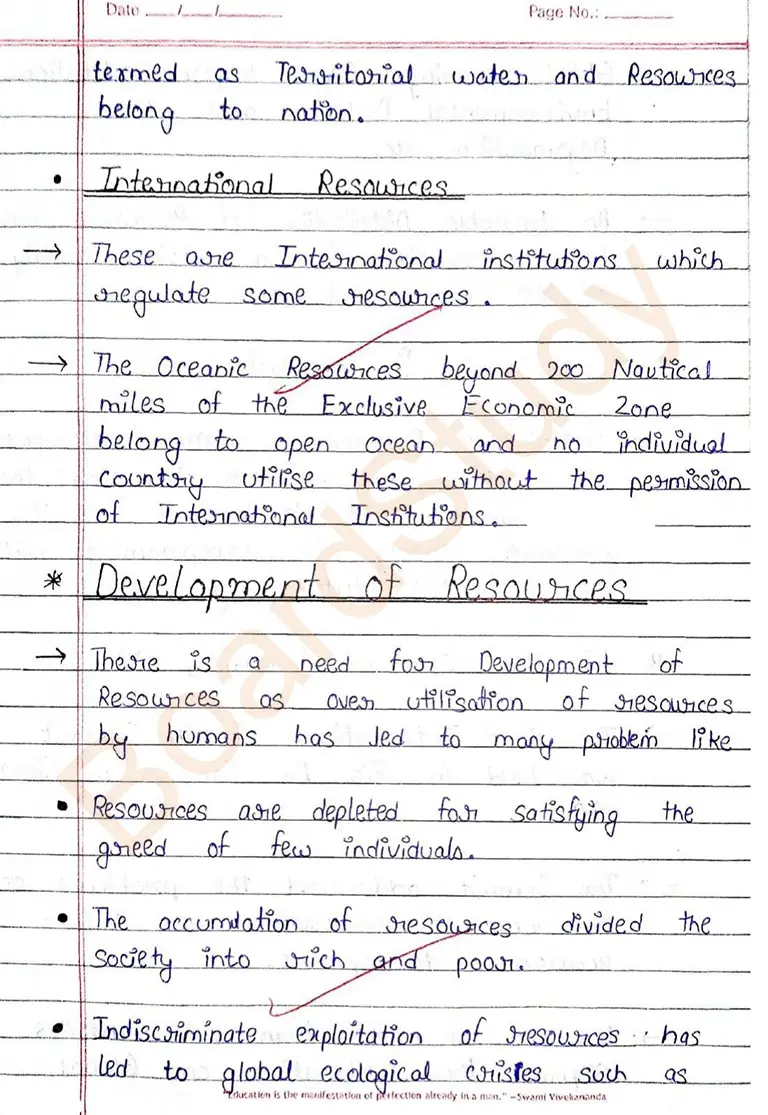 Date ___/___/___ Page No.: ________
termed as Territorial water and Resources
belong to nation.
• International Resources
→ These are International institutions which
regulate some resources.
→ The Oceanic Resources beyond 200 Nautical
miles of the Exclusive Economic Zone
belong to open ocean and no individual
country utilise these without the permission
of International Institutions.
* Development of Resources
→ There is a need for Development of
Resources as over utilisation of resources
by humans has led to many problem like
• Resources are depleted for satisfying the
greed of few individuals.
• The accumulation of resources divided the
society into rich and poor.
• Indiscriminate exploitation of resources has
led to global ecological crisies such as
"Education is the manifestation of perfection already in a man." –Swami Vivekananda
BoardStudy